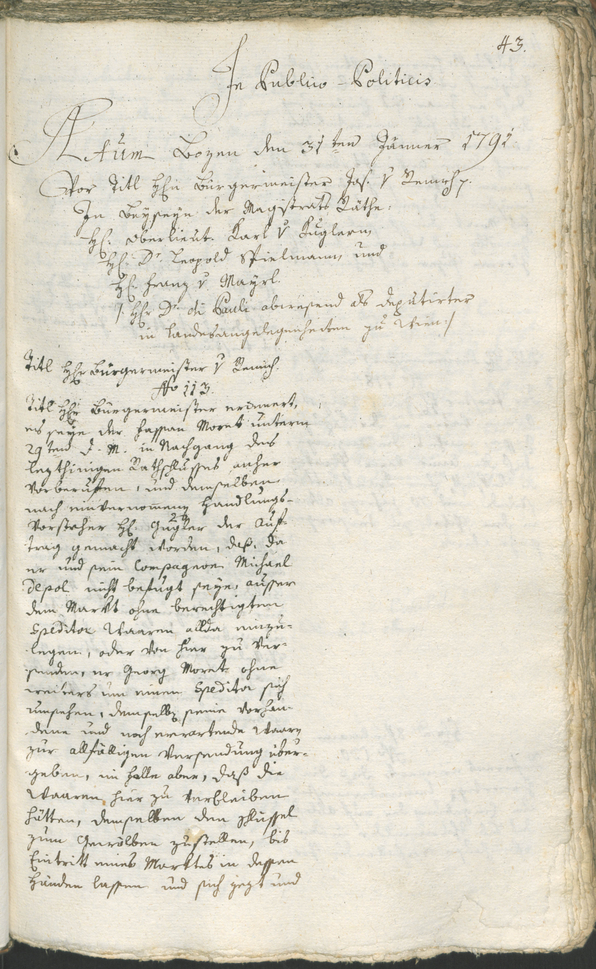 43.
In Publico-Politicis
Actum Bozen den 31ten Jänner 1791
Vor Titl Hhn Bürgermeister Jos. v Remich p.
In Beyseyn der Magistrats Räthe:
H: Oberlieut. Karl v Kuglern,
H: Dr Leopold Spielmann, und
H: Franz v Mayrl.
/: Hhr Dr di Pauli abwesend als deputirter
in Landesangelegenheiten zu Wien :/
Titl Hhr Bürgermeister v Remich.
No 113.
Titl Hhr Bürgermeister erinnert,
es seye der Fassan Moret unterm
29ten d. M. in Nachgang des
lezthinigen Rathschlusses anher
vorberufen, und demselben
nach einvernomenen Handlungs-
vorsteher H: Gugler der Auf-
trag gemacht worden, daß, da
er und sein Compagnon Michael
Depol nicht befugt seye, ausser
dem Markt ohne berechtigten
Speditor Waaren allda einzu-
legen, oder von hier zu ver-
senden, er Georg Moret ohne
weiters um einen Speditor sich
umsehen, demselben seine vorhan-
dene und noch erwartende Waaren
zur allfälligen Versendung über-
geben, im Falle aber, daß die
Waaren hier zu verbleiben
hätten, demselben den Schlüssel
zum Gewölben zustellen, bis
Eintritt eines Marktes in dessen
Händen lassen und sich jezt und